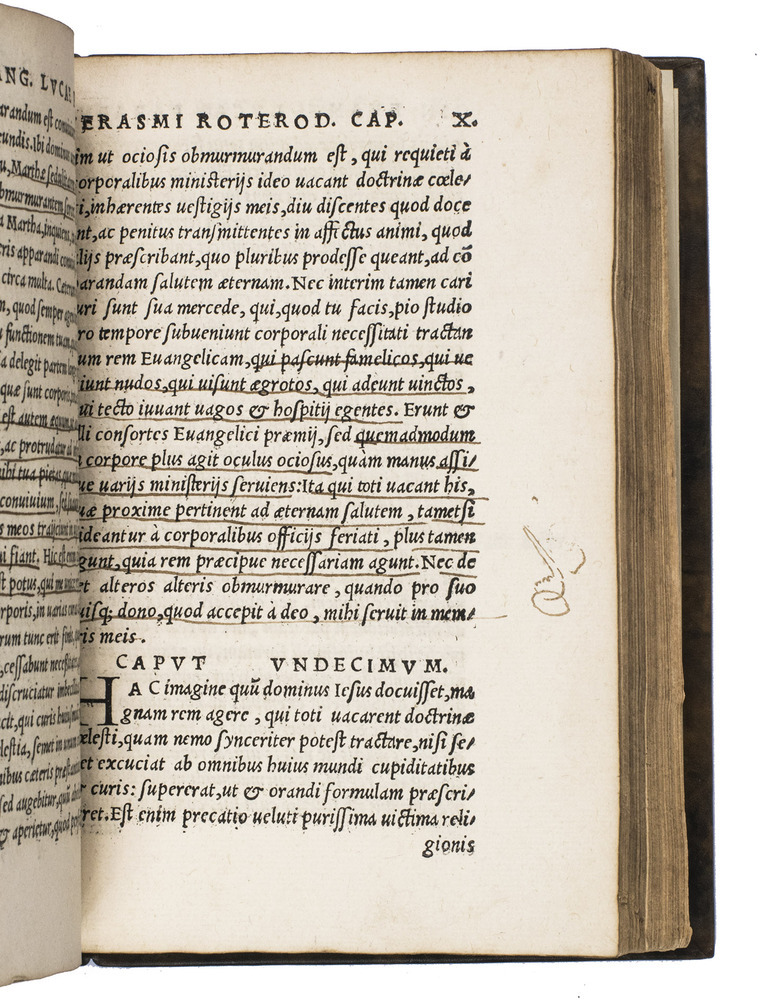 ANG. LVCAE
arandum est
cundis. Ibi domin
u, Marthæ sedulit
bmurmurantem
a Martha, inquiens,
ris apparandi
circa multa.
n, quod semper
functionem tuam,
a delegit partem
quæ sunt corpor
est autem æquum,
, ac protrudatur
ihi tua pietas,
conuiuium, sed
s meos traijciunt
ui fiant. Hic est
st potus, qui me
rporis, in uarias
rum tunc erit
, cessabunt necessitat
discruciatur imbecill
cit, qui curis
lestia, semet in unum
nibus cæteris præst
sed augebitur, quũ
& aperietur, quod
ERASMI ROTEROD. CAP. X.
im ut ociosis obmurmurandum est, qui requieti à
orporalibus ministerijs ideo uacant doctrinæ cœle/
i, inhærentes uestigijs meis, diu discentes quod doce
nt, ac penitus transmittentes in affectus animi, quod
lijs præscribant, quo pluribus prodesse queant, ad cõ
arandam salutem æternam. Nec interim tamen cari
uri sunt sua mercede, qui, quod tu facis, pio studio
ro tempore subueniunt corporali necessitati tractan
um rem Euangelicam, qui pascunt famelicos, qui ue
iunt nudos, qui uisunt ægrotos, qui adeunt uinctos,
ui tecto iuuant uagos & hospitij egentes. Erunt &
lli consortes Euangelici præmij, sed quemadmodum
i corpore plus agit oculus ociosus, quàm manus assi/
ue uarijs ministerijs seruiens: Ita qui toti uacant his,
uæ proxime pertinent ad æternam salutem, tametsi
ideantur à corporalibus officijs feriati, plus tamen
gunt, quia rem præcipue necessariam agunt. Nec de
et alteros alteris obmurmurare, quando pro suo
uisq; dono, quod accepit à deo, mihi seruit in mem/
ris meis.
CAPVT VNDECIMVM.
HAC imagine quũ dominus Iesus docuisset, ma
gnam rem agere, qui toti uacarent doctrinæ
œlesti, quam nemo synceriter potest tractare, nisi se/
et excuciat ab omnibus huius mundi cupiditatibus
r curis: supererat, ut & orandi formulam præscri/
ret. Est enim precatio ueluti purissima uictima reli/
gionis